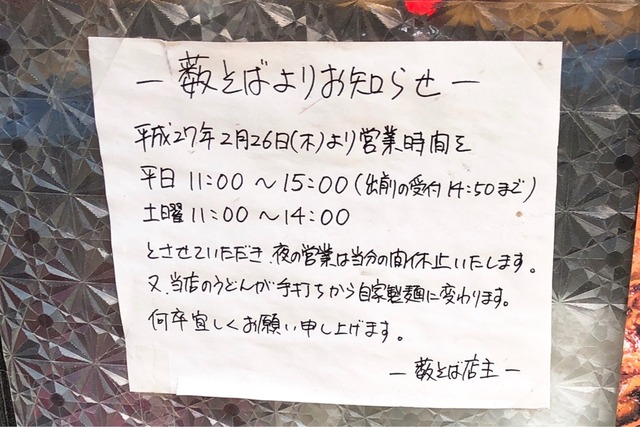 ― 薮そばよりお知らせ ―
平成27年2月26日(木)より営業時間を
平日 11:00 ～ 15:00 (出前の受付 14:50まで)
土曜 11:00 ～ 14:00
とさせていただき、夜の営業は当分の間休止いたします。
又、当店のうどんが手打ちから自家製麺に変わります。
何卒宜しくお願い申し上げます。
― 薮そば店主 ―